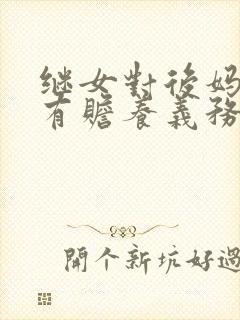 继女對後妈
有贍養義務
開個新坑好過